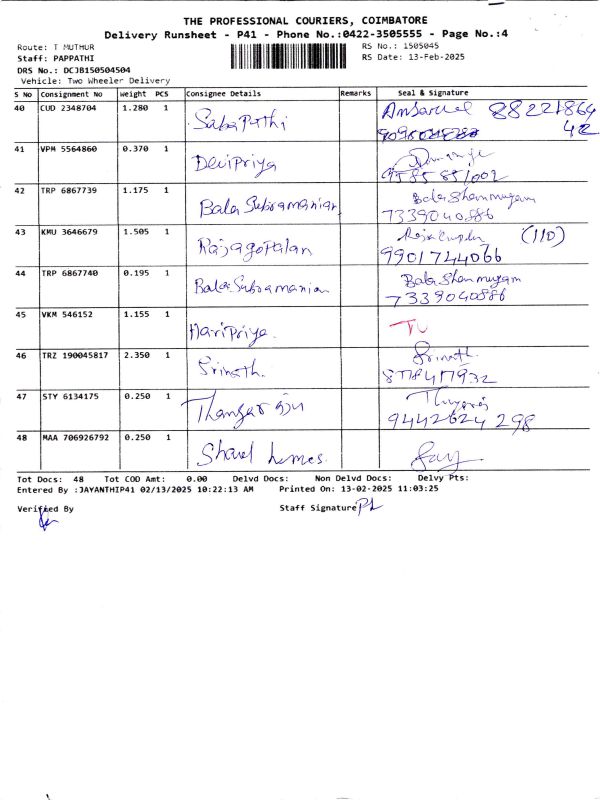 THE PROFESSIONAL COURIERS, COIMBATORE
Delivery Runsheet - P41 - Phone No.:0422-3505555 - Page No.:4
Route: T MUTHUR
RS No.: 1505045
Staff: PAPPATHI
RS Date: 13-Feb-2025
DRS No.: DCJB150504504
Vehicle: Two Wheeler Delivery
S No Consignment No Weight PCS Consignee Details Remarks Seal & Signature
40 CUD 2348704 1.280 1 Sabapathi
41 VPM 5564860 0.370 1 Devipriya
42 TRP 6867739 1.175 1 Bala Subramanian Bala Shanmugam
7339040886
43 KMU 3646679 1.505 1 Rajagopalan (110)
9901744066
44 TRP 6867740 0.195 1 Bala Subramanian Bala Shanmugam
7339040886
45 VKM 546152 1.155 1 Haripriya.
46 TRZ 190045817 2.350 1 Srinath. Srinath.
47 STY 6134175 0.250 1 Thangaraju
9442624298
48 MAA 706926792 0.250 1 homes.
Tot Docs: 48 Tot COD Amt: 0.00 Delvd Docs: Non Delvd Docs: Delvy Pts:
Entered By :JAYANTHIP41 02/13/2025 10:22:13 AM Printed On: 13-02-2025 11:03:25
Verified By Staff Signature